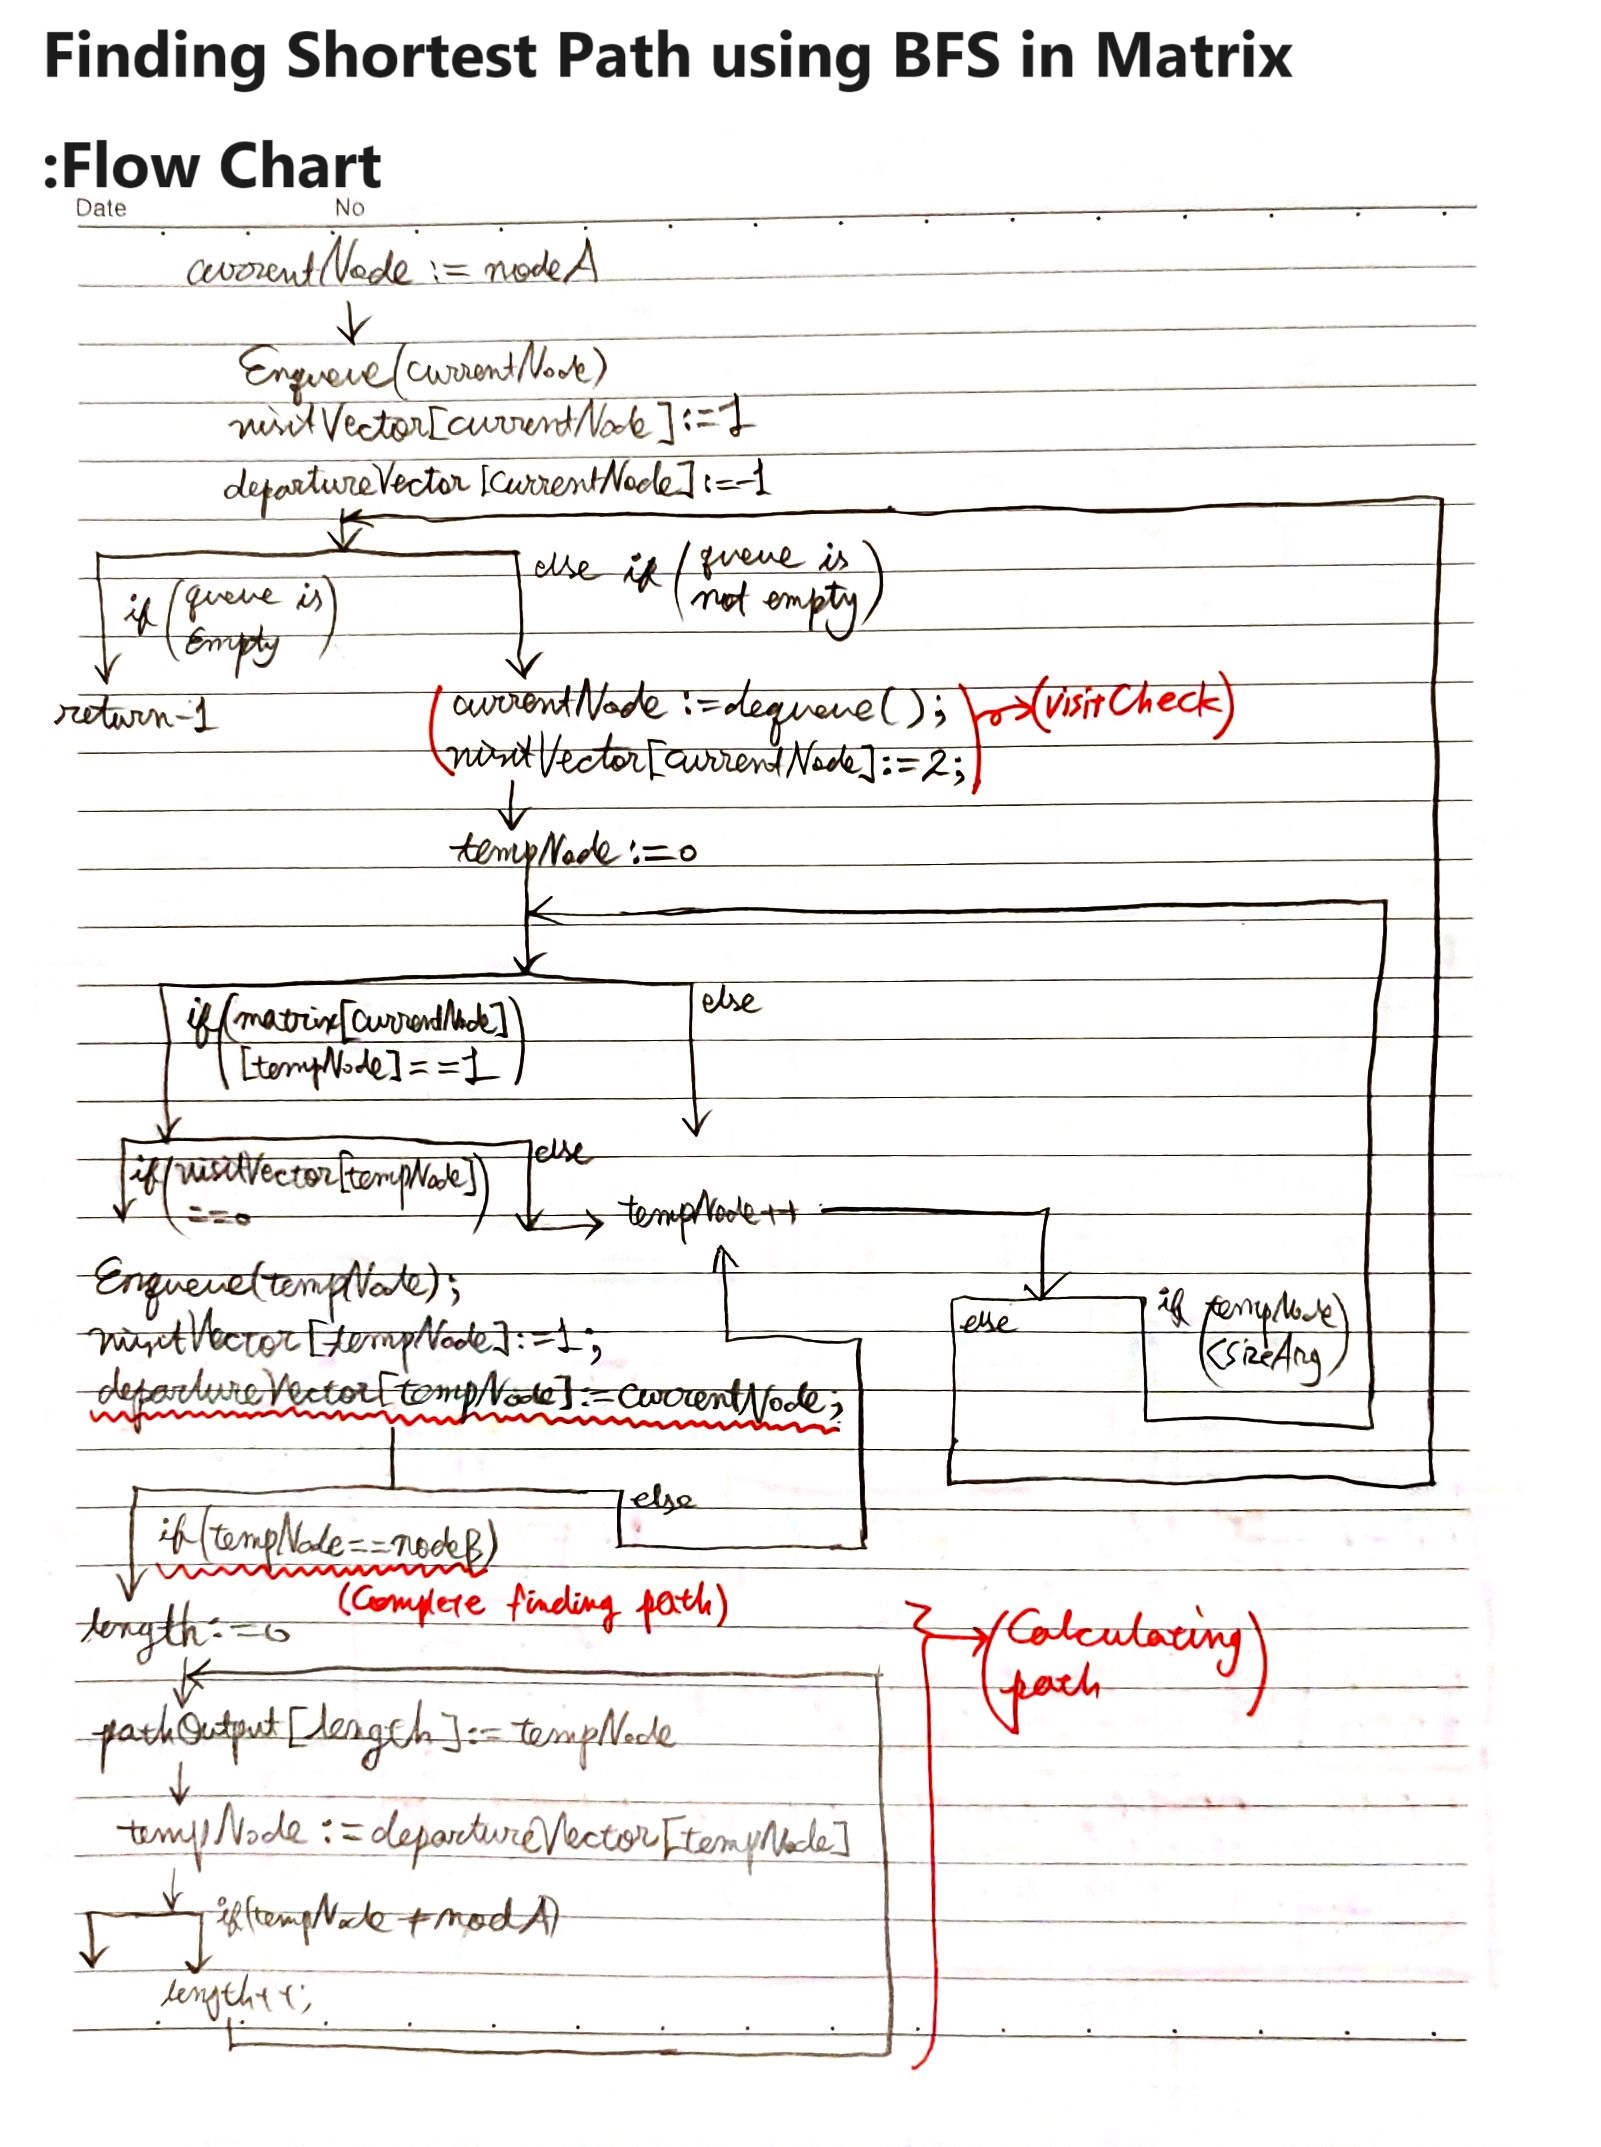 Finding Shortest Path using BFS in Matrix
:Flow Chart
Date No
currentNode := nodeA
Enqueue(currentNode)
visitVector[currentNode]:=1
departureVector[currentNode]:=-1
if (queue is
Empty)
else if (queue is
not empty)
return-1
(currentNode :=dequeue(); →(visitCheck)
visitVector[currentNode]:=2;)
tempNode :=0
if(matrix[currentNode]
[tempNode]==1)
else
if(visitVector[tempNode]
==0)
else
tempNode++
Enqueue(tempNode);
visitVector[tempNode]:=1;
departureVector[tempNode]:=currentNode;
else
if (tempNode
<sizeArg)
if(tempNode==nodeB)
else
(Complete finding path)
length:=0
(Calculating
path)
pathOutput[length]:=tempNode
tempNode :=departureVector[tempNode]
if(tempNode ≠ nodA)
length++;